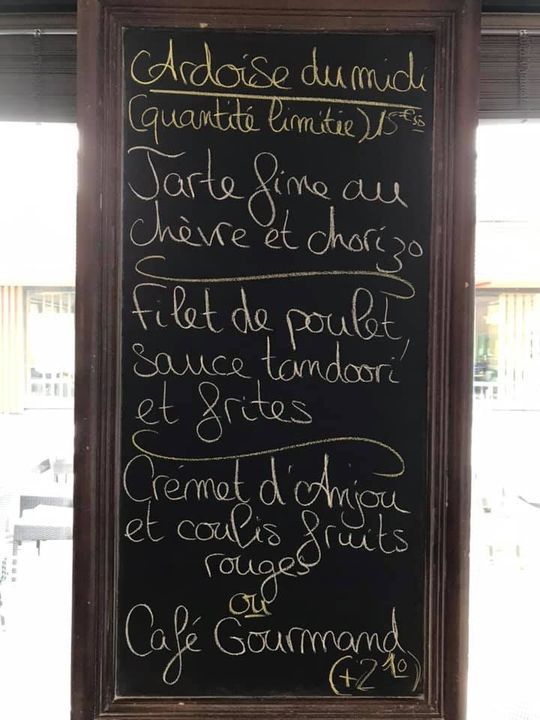 Ardoise du midi
(quantité limitée) 15€50
Tarte fine au
chèvre et chorizo
Filet de poulet,
sauce tandoori
et frites
Crémet d'Anjou
et coulis fruits
rouges
ou
Café Gourmand
(+210)